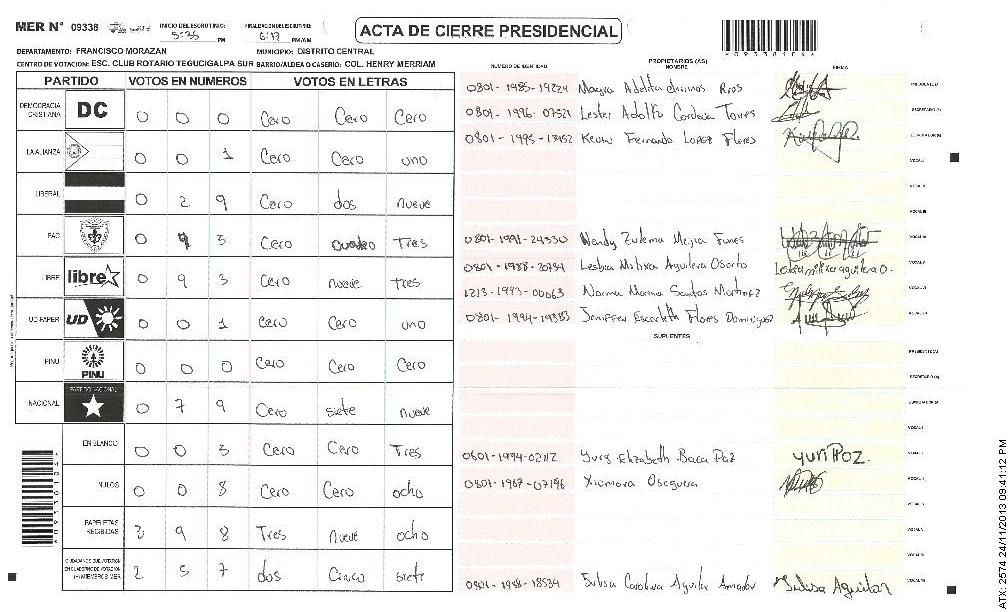 MER Nº 09338 INICIO DEL ESCRUTINIO: 5:35 PM FINALIZACION DEL ESCRUTINIO: 6:17 PM/AM
ACTA DE CIERRE PRESIDENCIAL
DEPARTAMENTO: FRANCISCO MORAZAN MUNICIPIO: DISTRITO CENTRAL
CENTRO DE VOTACION: ESC. CLUB ROTARIO TEGUCIGALPA SUR BARRIO/ALDEA O CASERIO: COL. HENRY MERRIAM
PARTIDO VOTOS EN NUMEROS VOTOS EN LETRAS
DEMOCRACIA CRISTIANA DC 0 0 0 Cero Cero Cero
LA ALIANZA 0 0 1 Cero Cero uno
LIBERAL 0 2 9 Cero dos nueve
PAC 0 4 3 Cero cuatro Tres
LIBRE libre 0 9 3 Cero nueve tres
UD-FAPER UD 0 0 1 Cero Cero uno
PINU PINU 0 0 0 Cero Cero Cero
NACIONAL PARTIDO NACIONAL 0 7 9 Cero siete nueve
EN BLANCO 0 0 3 Cero Cero Tres
NULOS 0 0 8 Cero Cero ocho
PAPELETAS RECIBIDAS 3 9 8 Tres nueve ocho
CIUDADANOS QUE VOTARON EN CUADERNO DE VOTACION (+) MIEMBROS MER 2 5 7 dos Cinco siete
PROPIETARIOS (AS)
NUMERO DE IDENTIDAD NOMBRE FIRMA
0801-1985-19224 Mayra Adelita chirinos Rios PRESIDENTE(A)
0801-1996-07521 Lester Adolfo Cordova Torres SECRETARIO(A)
0801-1995-13952 Kevin Fernando Lopez Flores ESCRUTADOR(A)
VOCAL I
VOCAL II
VOCAL III
0801-1991-24530 Wendy Zulema Mejia Funes VOCAL IV
0801-1988-20734 Lesbia Milixa Aguilera Osorto Lesbia milixa aguilera O. VOCAL V
1213-1993-00063 Norma Marina Santos Martinez VOCAL VI
0801-1994-19383 Jeniffer Escarleth Flores Dominguez VOCAL VII
SUPLENTES
PRESIDENTE(A)
SECRETARIO(A)
ESCRUTADOR(A)
VOCAL I
0601-1994-02112 Yury Elizabeth Baca Paz yuri Paz.
0801-1967-07196 Xiomara Oseguera
VOCAL V
VOCAL VI
0801-1988-18534 Julisa Carolina Aguilar Amador Julisa Aguilar VOCAL VII
ATX 2574 24/11/2013 09:41:12 PM